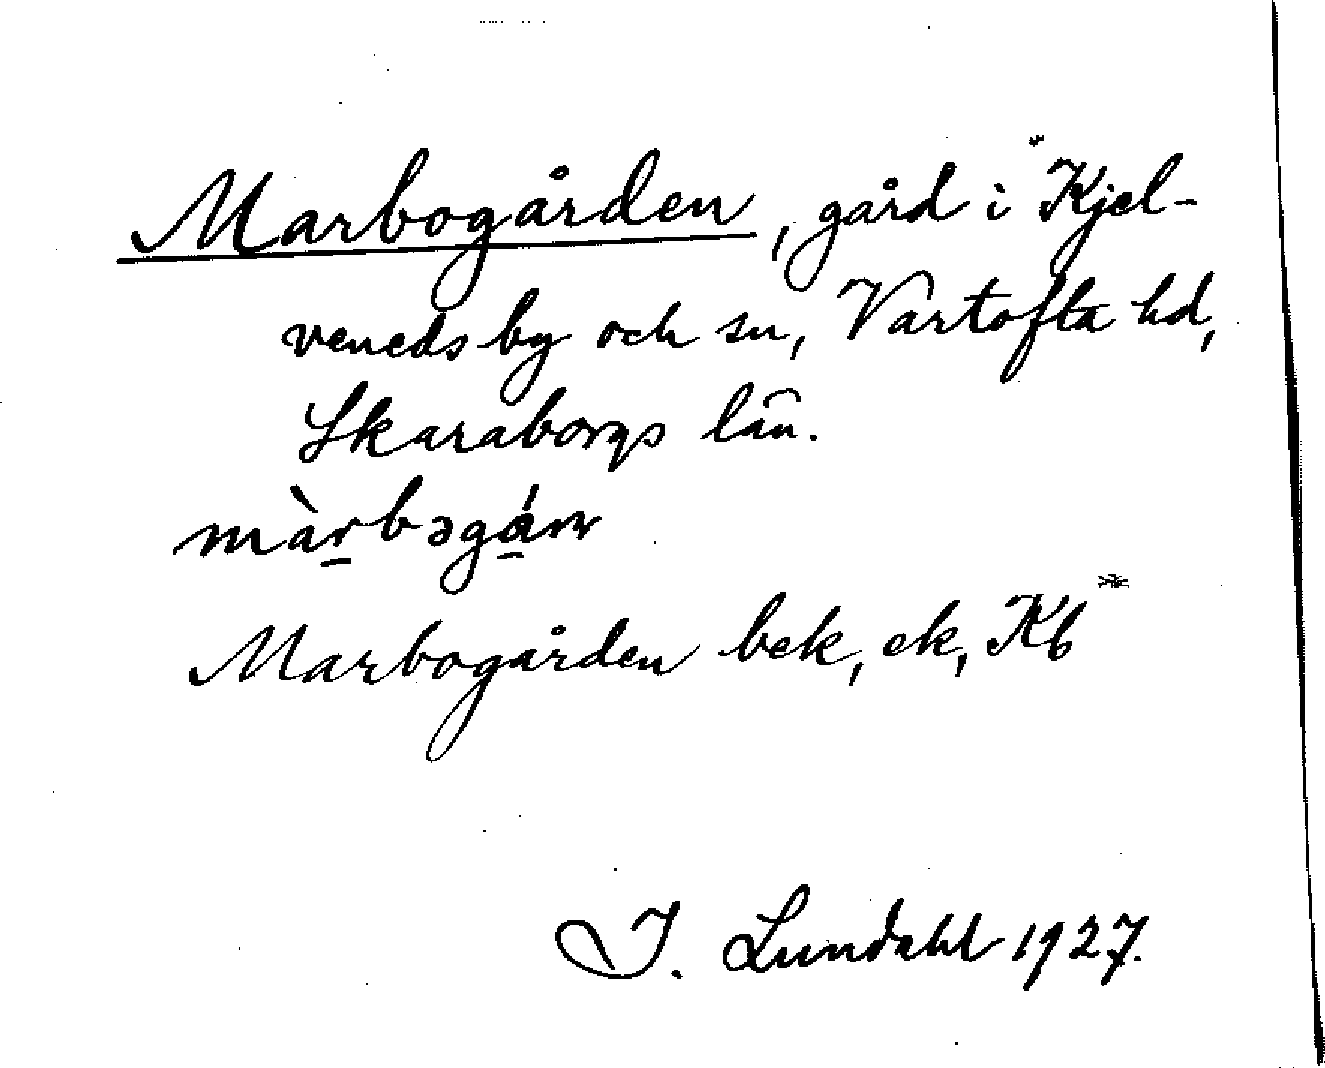 Marbogården, gård i Kjel-
veneds by och sn, Vartofta hd,
Skaraborgs län.
màr̠bəgá̠nn
Marbogården bek, ek, Kb*
I. Lundahl 1927.